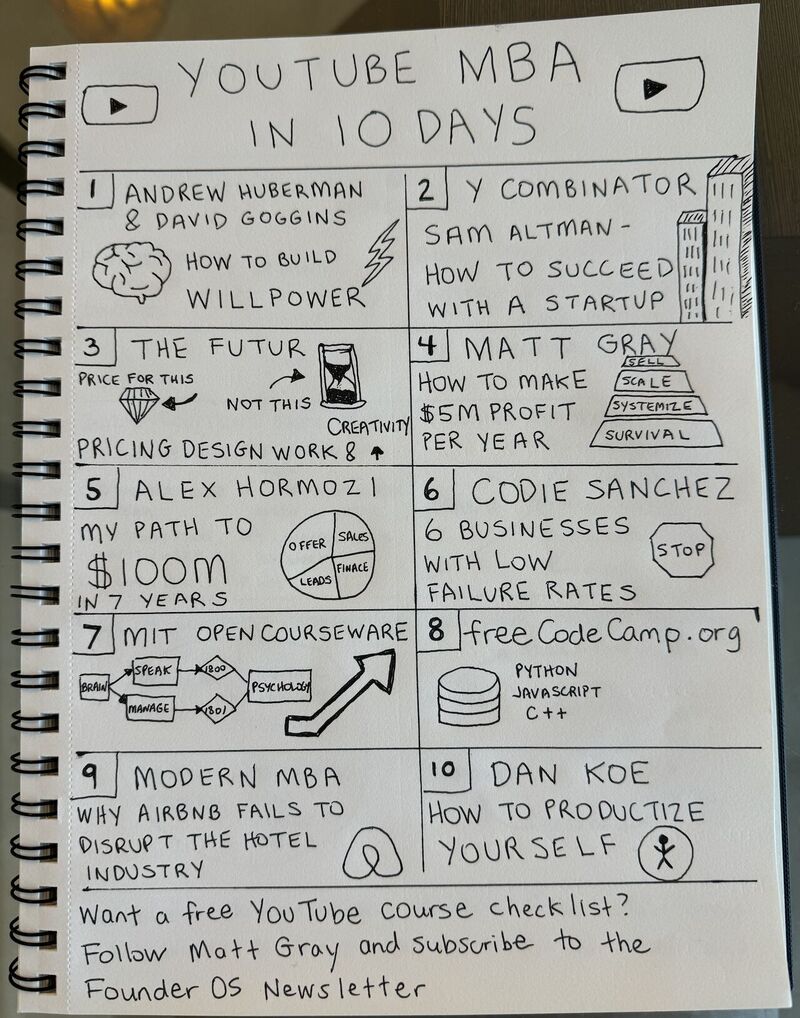 YOUTUBE MBA
IN 10 DAYS
1 ANDREW HUBERMAN
& DAVID GOGGINS
HOW TO BUILD
WILLPOWER
2 Y COMBINATOR
SAM ALTMAN-
HOW TO SUCCEED
WITH A STARTUP
3 THE FUTUR
PRICE FOR THIS
NOT THIS
CREATIVITY
PRICING DESIGN WORK &
4 MATT GRAY
HOW TO MAKE
$5M PROFIT
PER YEAR
SELL
SCALE
SYSTEMIZE
SURVIVAL
5 ALEX HORMOZI
MY PATH TO
$100M
IN 7 YEARS
OFFER
SALES
LEADS
FINACE
6 CODIE SANCHEZ
6 BUSINESSES
WITH LOW
FAILURE RATES
STOP
7 MIT OPEN COURSEWARE
BRAIN
SPEAK
1800
MANAGE
1801
PSYCHOLOGY
8 freeCodeCamp.org
PYTHON
JAVASCRIPT
C++
9 MODERN MBA
WHY AIRBNB FAILS TO
DISRUPT THE HOTEL
INDUSTRY
10 DAN KOE
HOW TO PRODUCTIZE
YOURSELF
Want a free YouTube course checklist?
Follow Matt Gray and subscribe to the
Founder OS Newsletter